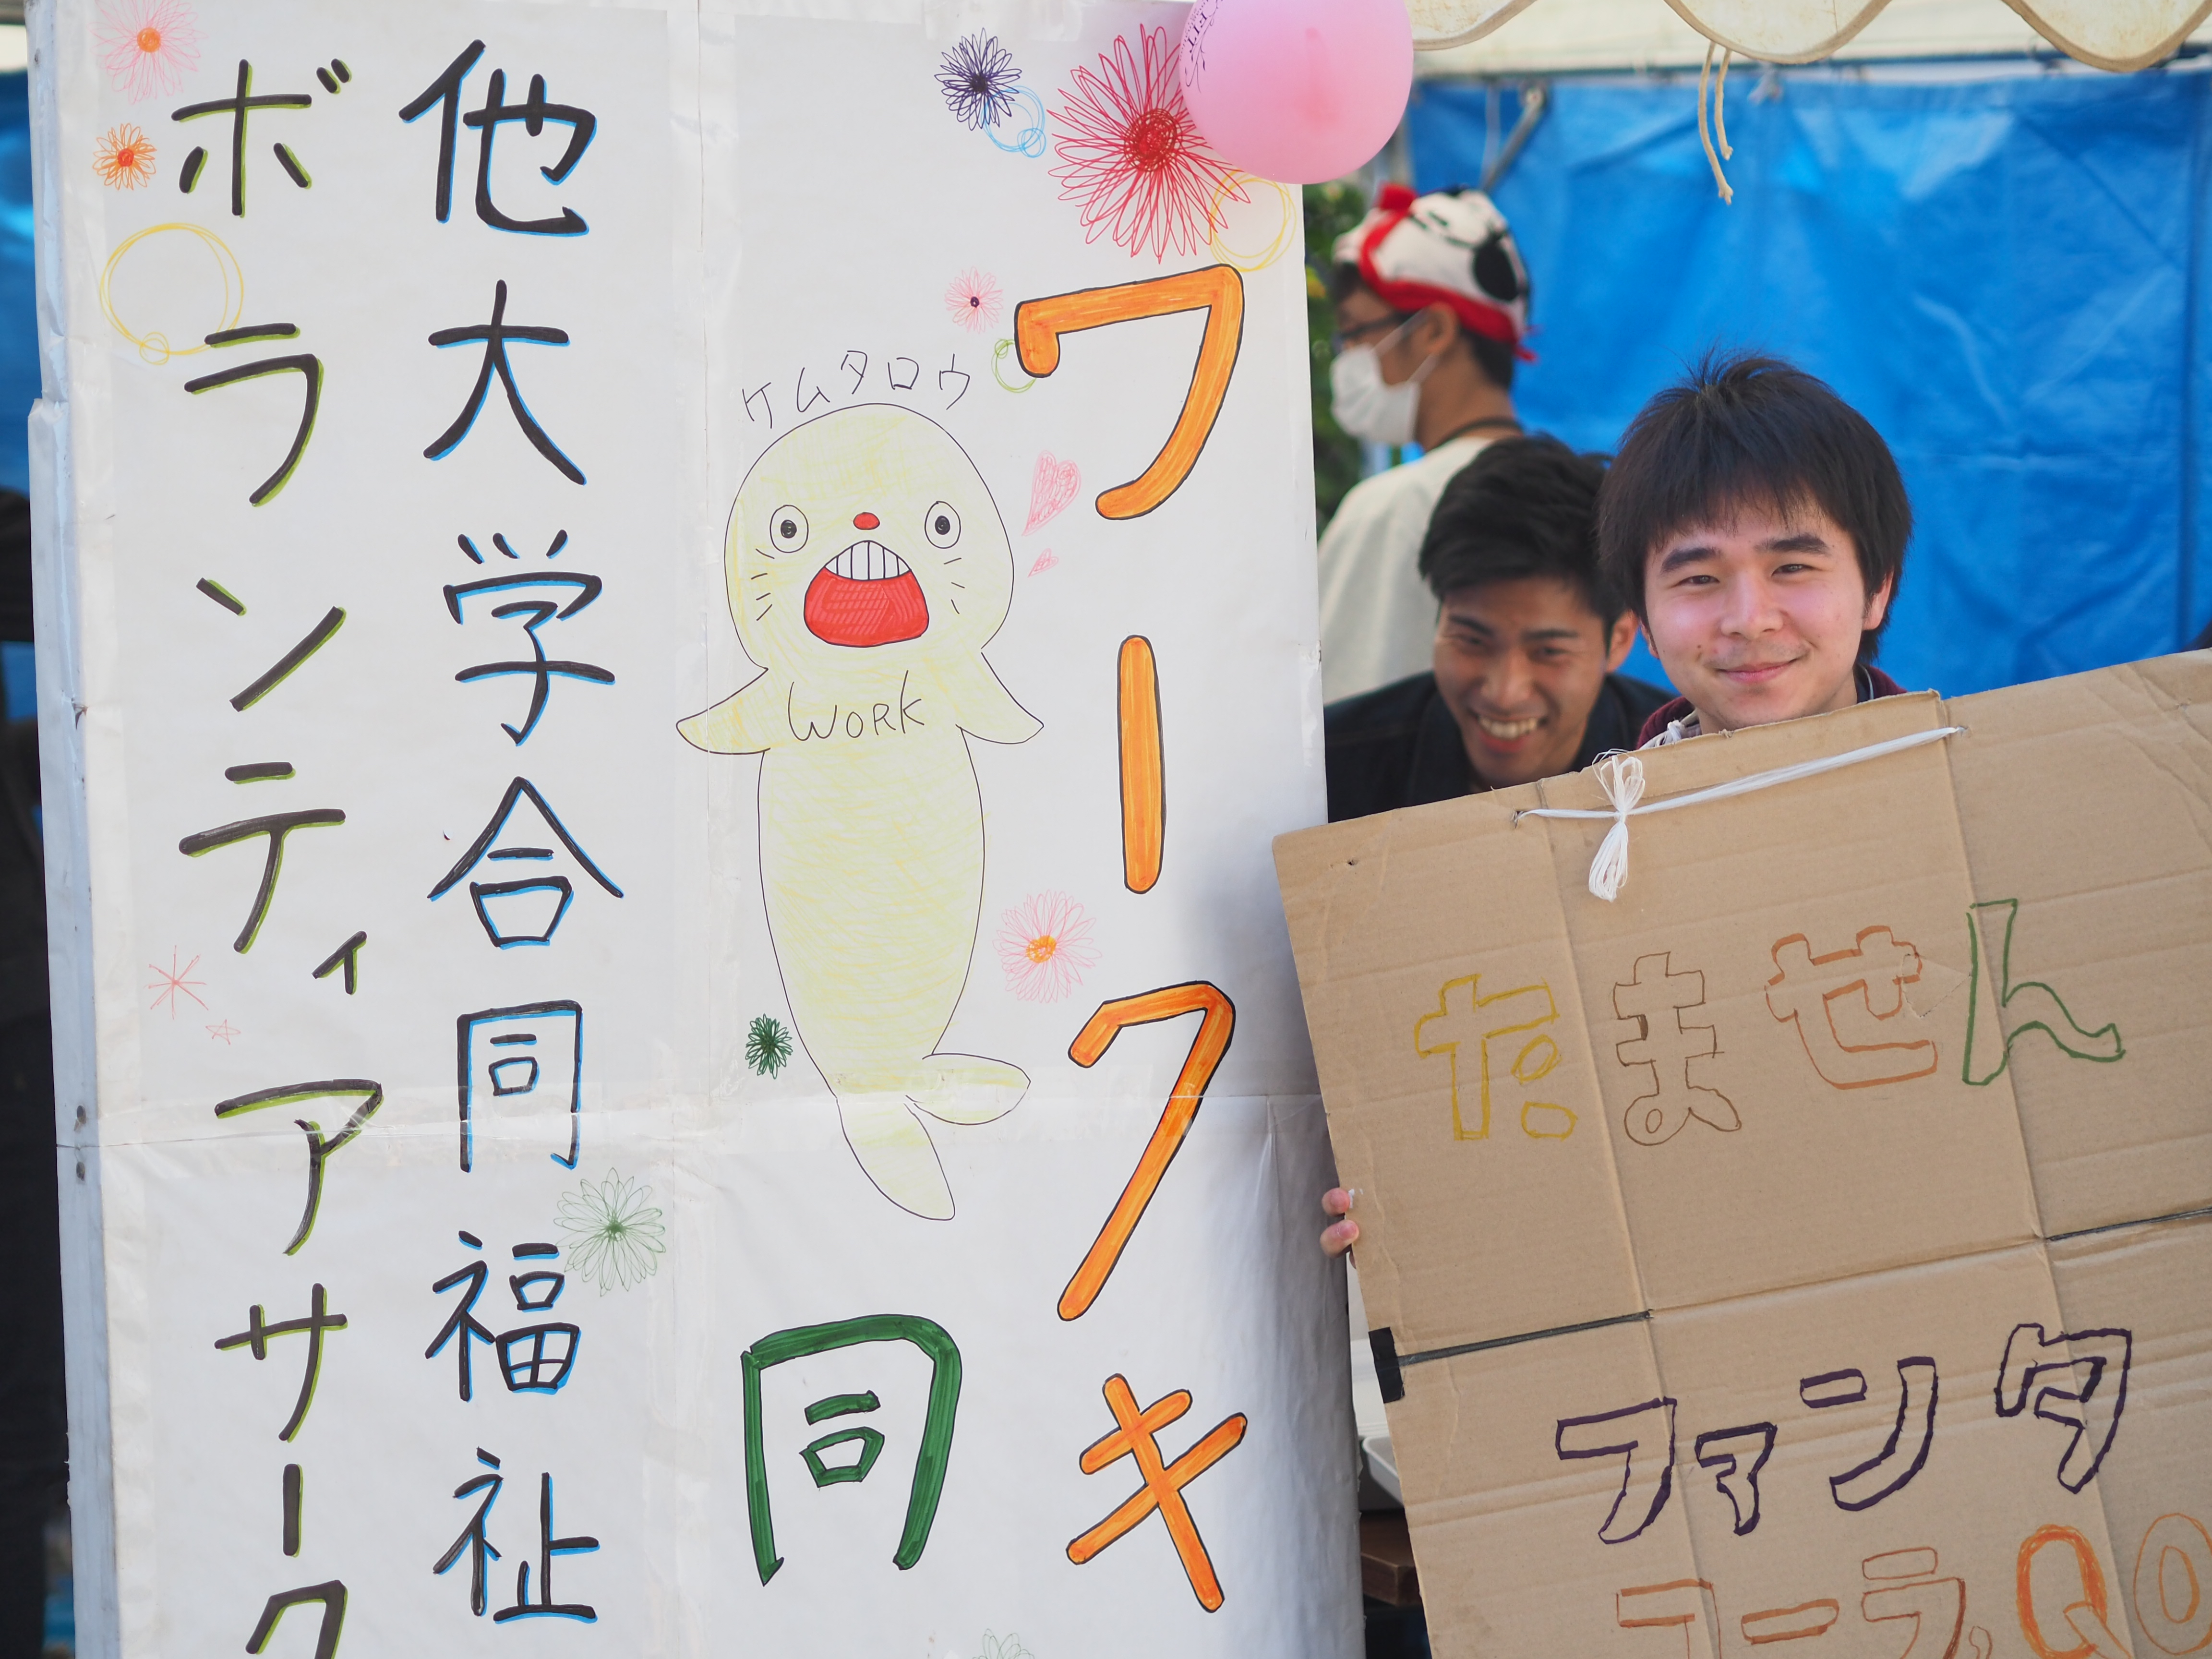 ワークキ
同
ケムタロウ
WORK
他大学合同福祉
ボランティアサーク
たません
ファンタ
コーラ、QO